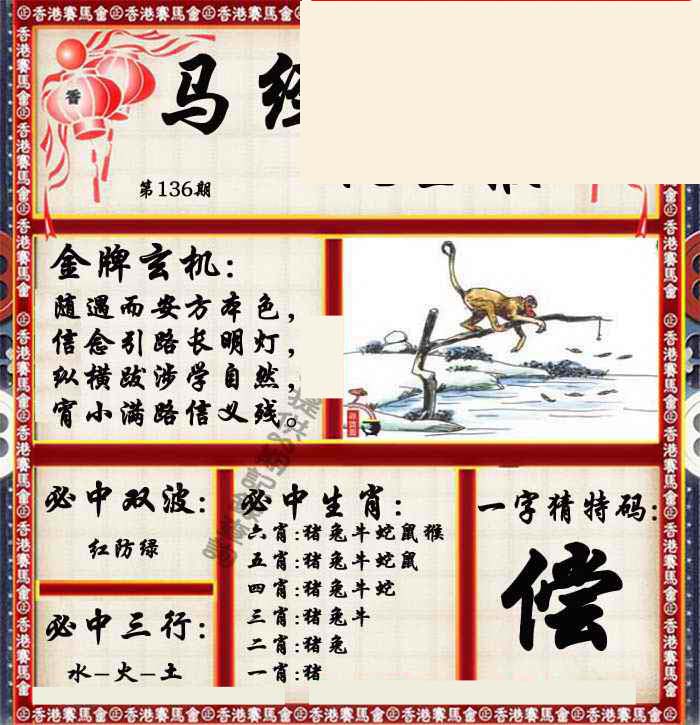 香港賽馬會
香
马经
第136期
金牌玄机：
随遇而安方本色，
信念引路长明灯，
纵横跋涉学自然，
宵小满路信义残。
必中双波：
红防绿
必中三行：
水-火-土
必中生肖：
六肖:猪兔牛蛇鼠猴
五肖:猪兔牛蛇鼠
四肖:猪兔牛蛇
三肖:猪兔牛
二肖:猪兔
一肖:猪
一字猜特码：
偿